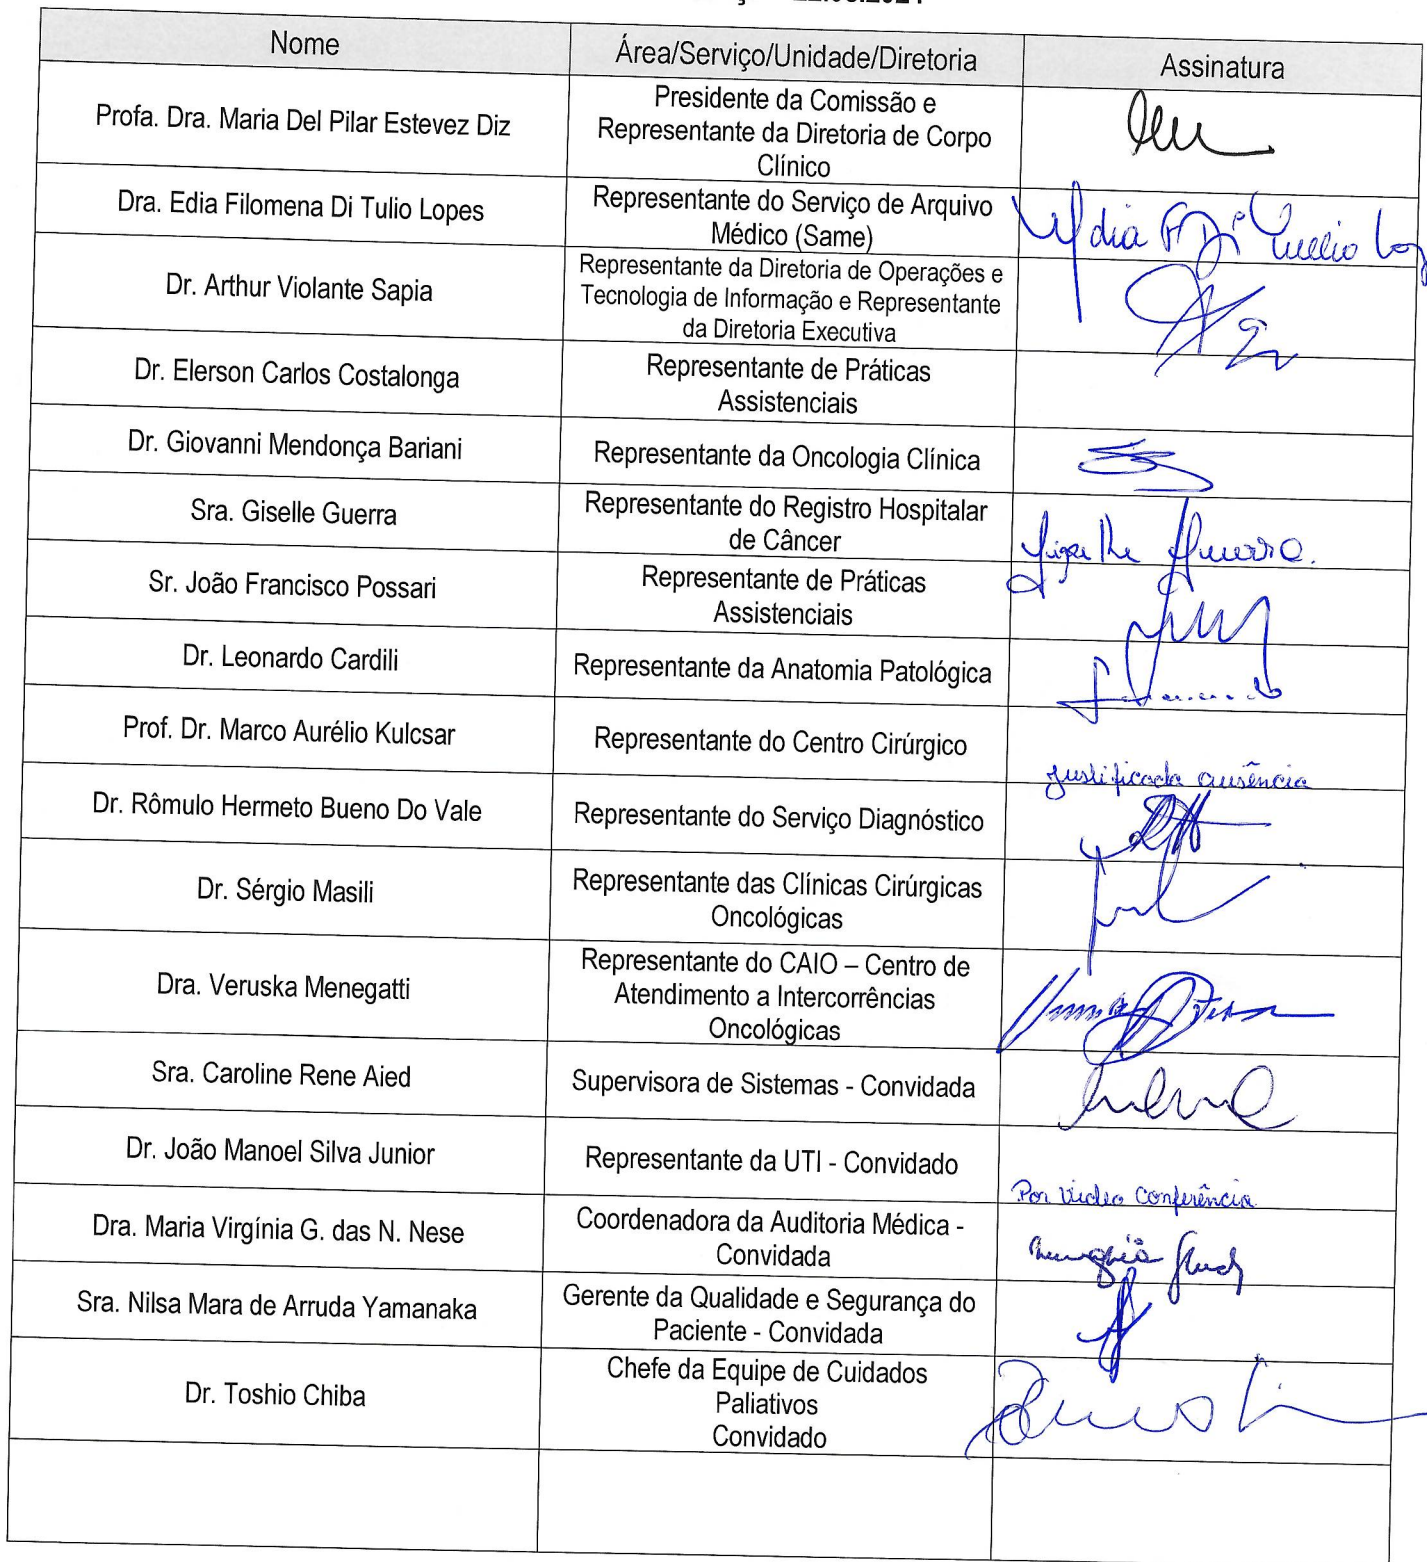 Nome
Área/Serviço/Unidade/Diretoria
Assinatura
Profa. Dra. Maria Del Pilar Estevez Diz
Presidente da Comissão e
Representante da Diretoria de Corpo
Clínico
Dra. Edia Filomena Di Tulio Lopes
Representante do Serviço de Arquivo
Médico (Same)
Dr. Arthur Violante Sapia
Representante da Diretoria de Operações e
Tecnologia de Informação e Representante
da Diretoria Executiva
Dr. Elerson Carlos Costalonga
Representante de Práticas
Assistenciais
Dr. Giovanni Mendonça Bariani
Representante da Oncologia Clínica
Sra. Giselle Guerra
Representante do Registro Hospitalar
de Câncer
Giselle Guerra.
Sr. João Francisco Possari
Representante de Práticas
Assistenciais
Dr. Leonardo Cardili
Representante da Anatomia Patológica
Prof. Dr. Marco Aurélio Kulcsar
Representante do Centro Cirúrgico
justificada ausência
Dr. Rômulo Hermeto Bueno Do Vale
Representante do Serviço Diagnóstico
Dr. Sérgio Masili
Representante das Clínicas Cirúrgicas
Oncológicas
Dra. Veruska Menegatti
Representante do CAIO – Centro de
Atendimento a Intercorrências
Oncológicas
Sra. Caroline Rene Aied
Supervisora de Sistemas - Convidada
Dr. João Manoel Silva Junior
Representante da UTI - Convidado
Por vídeo conferência
Dra. Maria Virgínia G. das N. Nese
Coordenadora da Auditoria Médica -
Convidada
Sra. Nilsa Mara de Arruda Yamanaka
Gerente da Qualidade e Segurança do
Paciente - Convidada
Dr. Toshio Chiba
Chefe da Equipe de Cuidados
Paliativos
Convidado